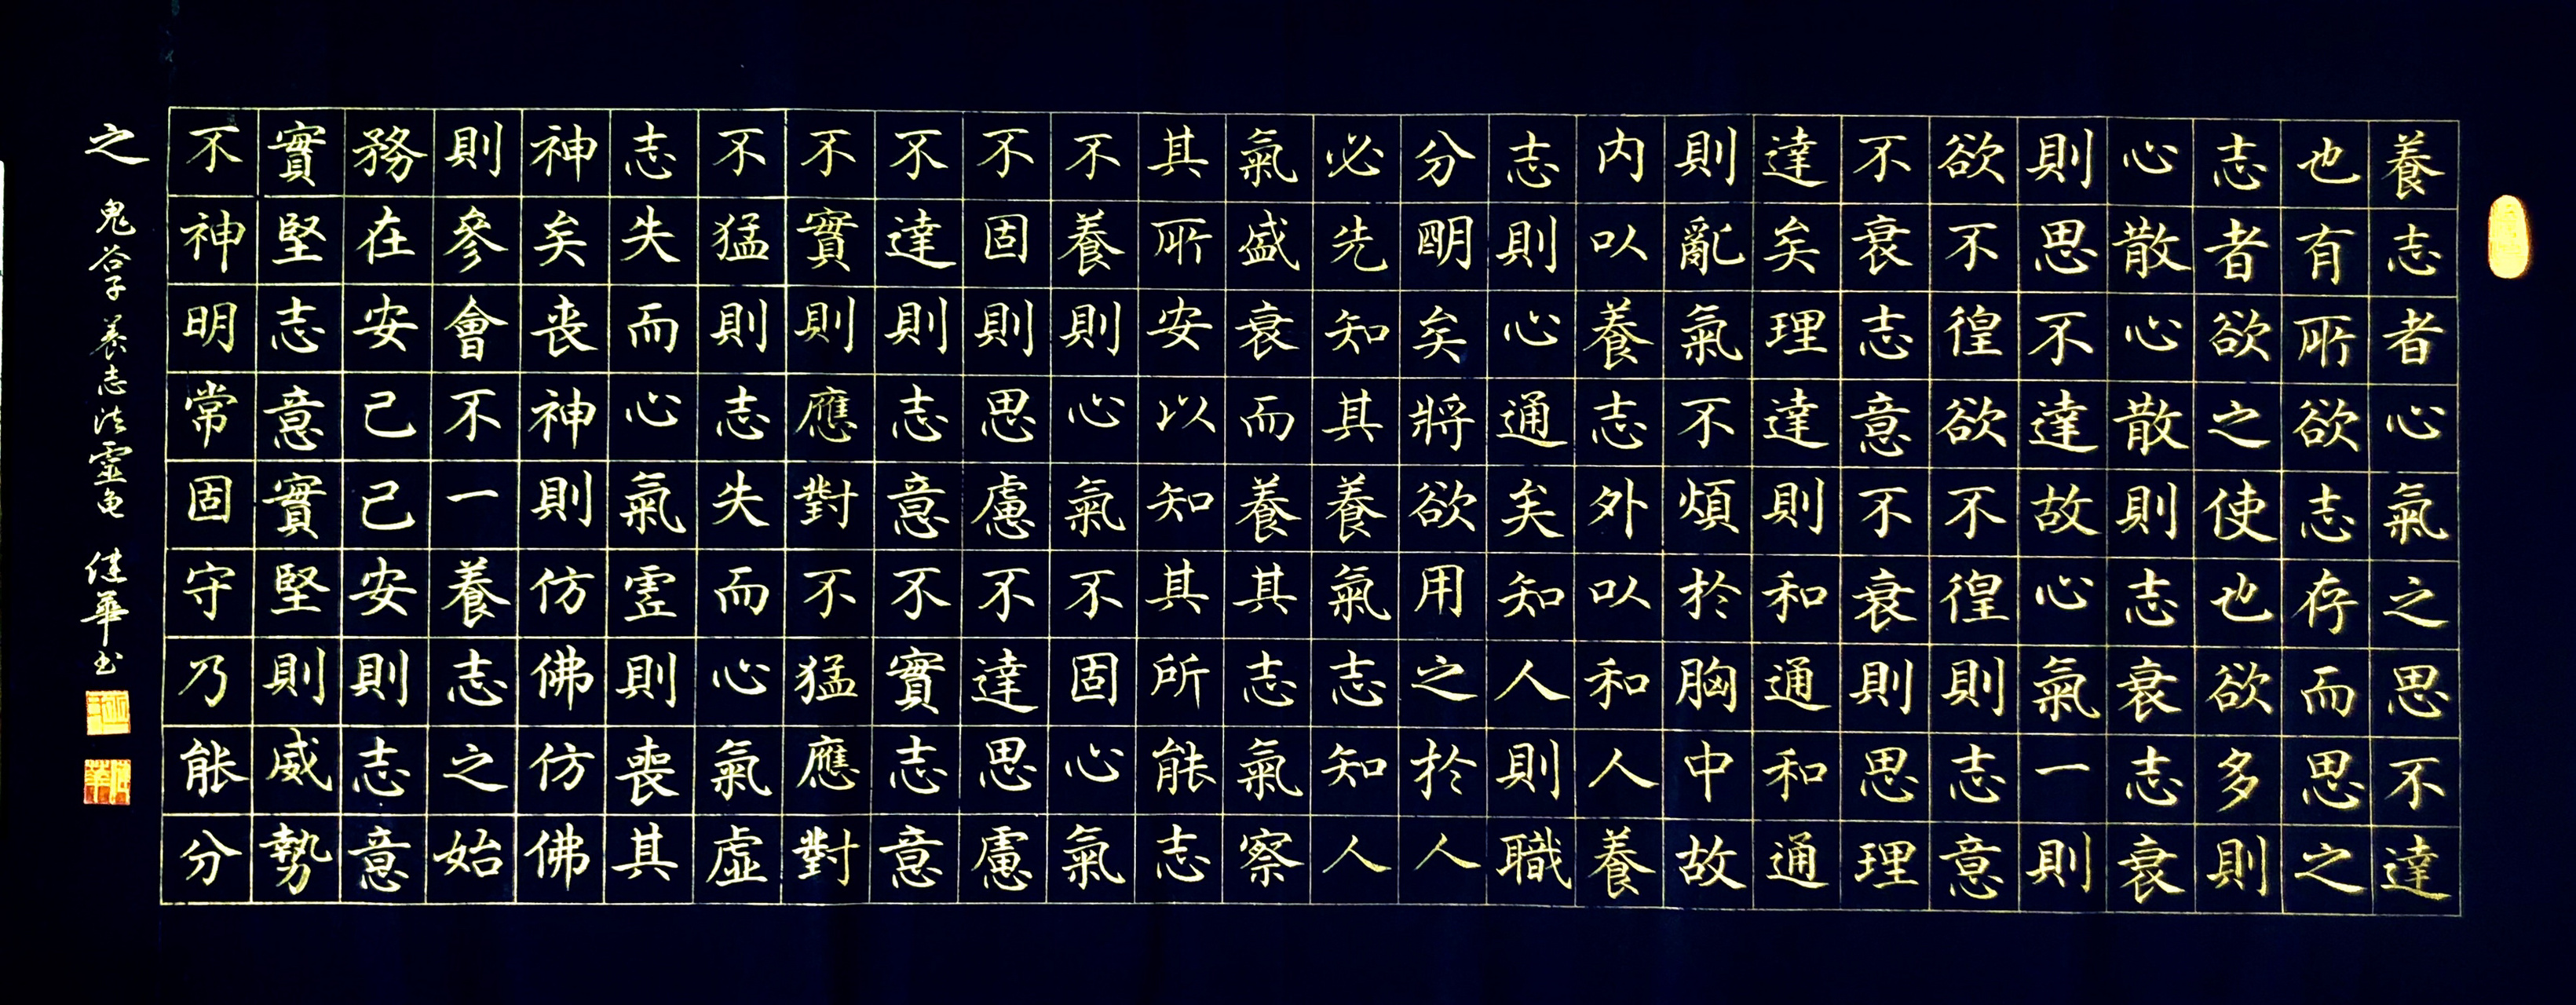 養志者心氣之思不達
也有所欲志存而思之
志者欲之使也欲多則
心散心散則志衰志衰
則思不達故心氣一則
欲不徨欲不徨則志意
不衰志意不衰則思理
達矣理達則和通和通
則亂氣不煩於胸中故
内以養志外以和人養
志則心通矣知人則職
分明矣將欲用之於人
必先知其養氣志知人
氣盛衰而養其志氣察
其所安以知其所能志
不養則心氣不固心氣
不固則思慮不達思慮
不達則志意不實志意
不實則應對不猛應對
不猛則志失而心氣虛
志失而心氣虛則喪其
神矣喪神則仿佛仿佛
則參會不一養志之始
務在安己己安則志意
實堅志意實堅則威勢
不神明常固守乃能分
之 鬼谷子養志法靈龟 佳華书